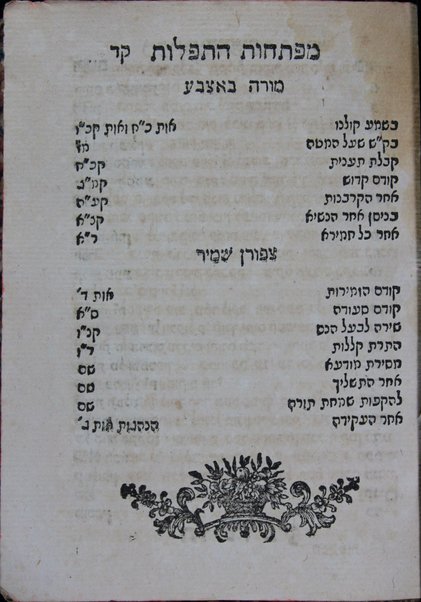 מפתחות התפלות קד
מורה באצבע
בשמע קולנו אות כ״ח ואות קכ״ו
בק״ש שעל המטה מ״ד
קבלת תענית קכ״ח
קודם קדוש קמ״ב
אחר הקרבנות קע״ח
בניסן אחר הנשיא קנ״א
אחר כל חמירא ר״א
צפורן שמיר
קודם הזמירות אות ד׳
קודם סעודה ס״א
שירה לבעל הנס קנ״ו
התרת קללות ד״ו
מסירת מודעא שם
אחר התשליך שם
להקפות שמחת תורה שם
אחר העקידה הנהגות אות ג׳